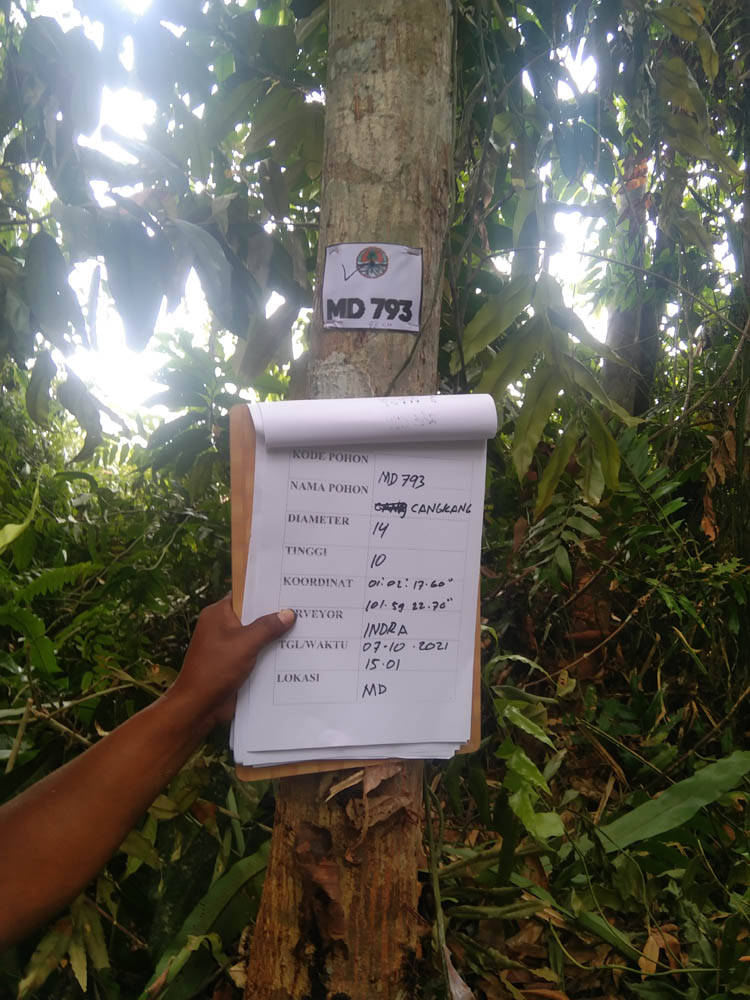 MD 793
KODE POHON MD 793
NAMA POHON CANGKANG
DIAMETER 14
TINGGI 10
KOORDINAT 01: 02: 17.60"
101. 59 22.70"
RVEYOR INDRA
TGL/WAKTU 07.10.2021
15.01
LOKASI MD